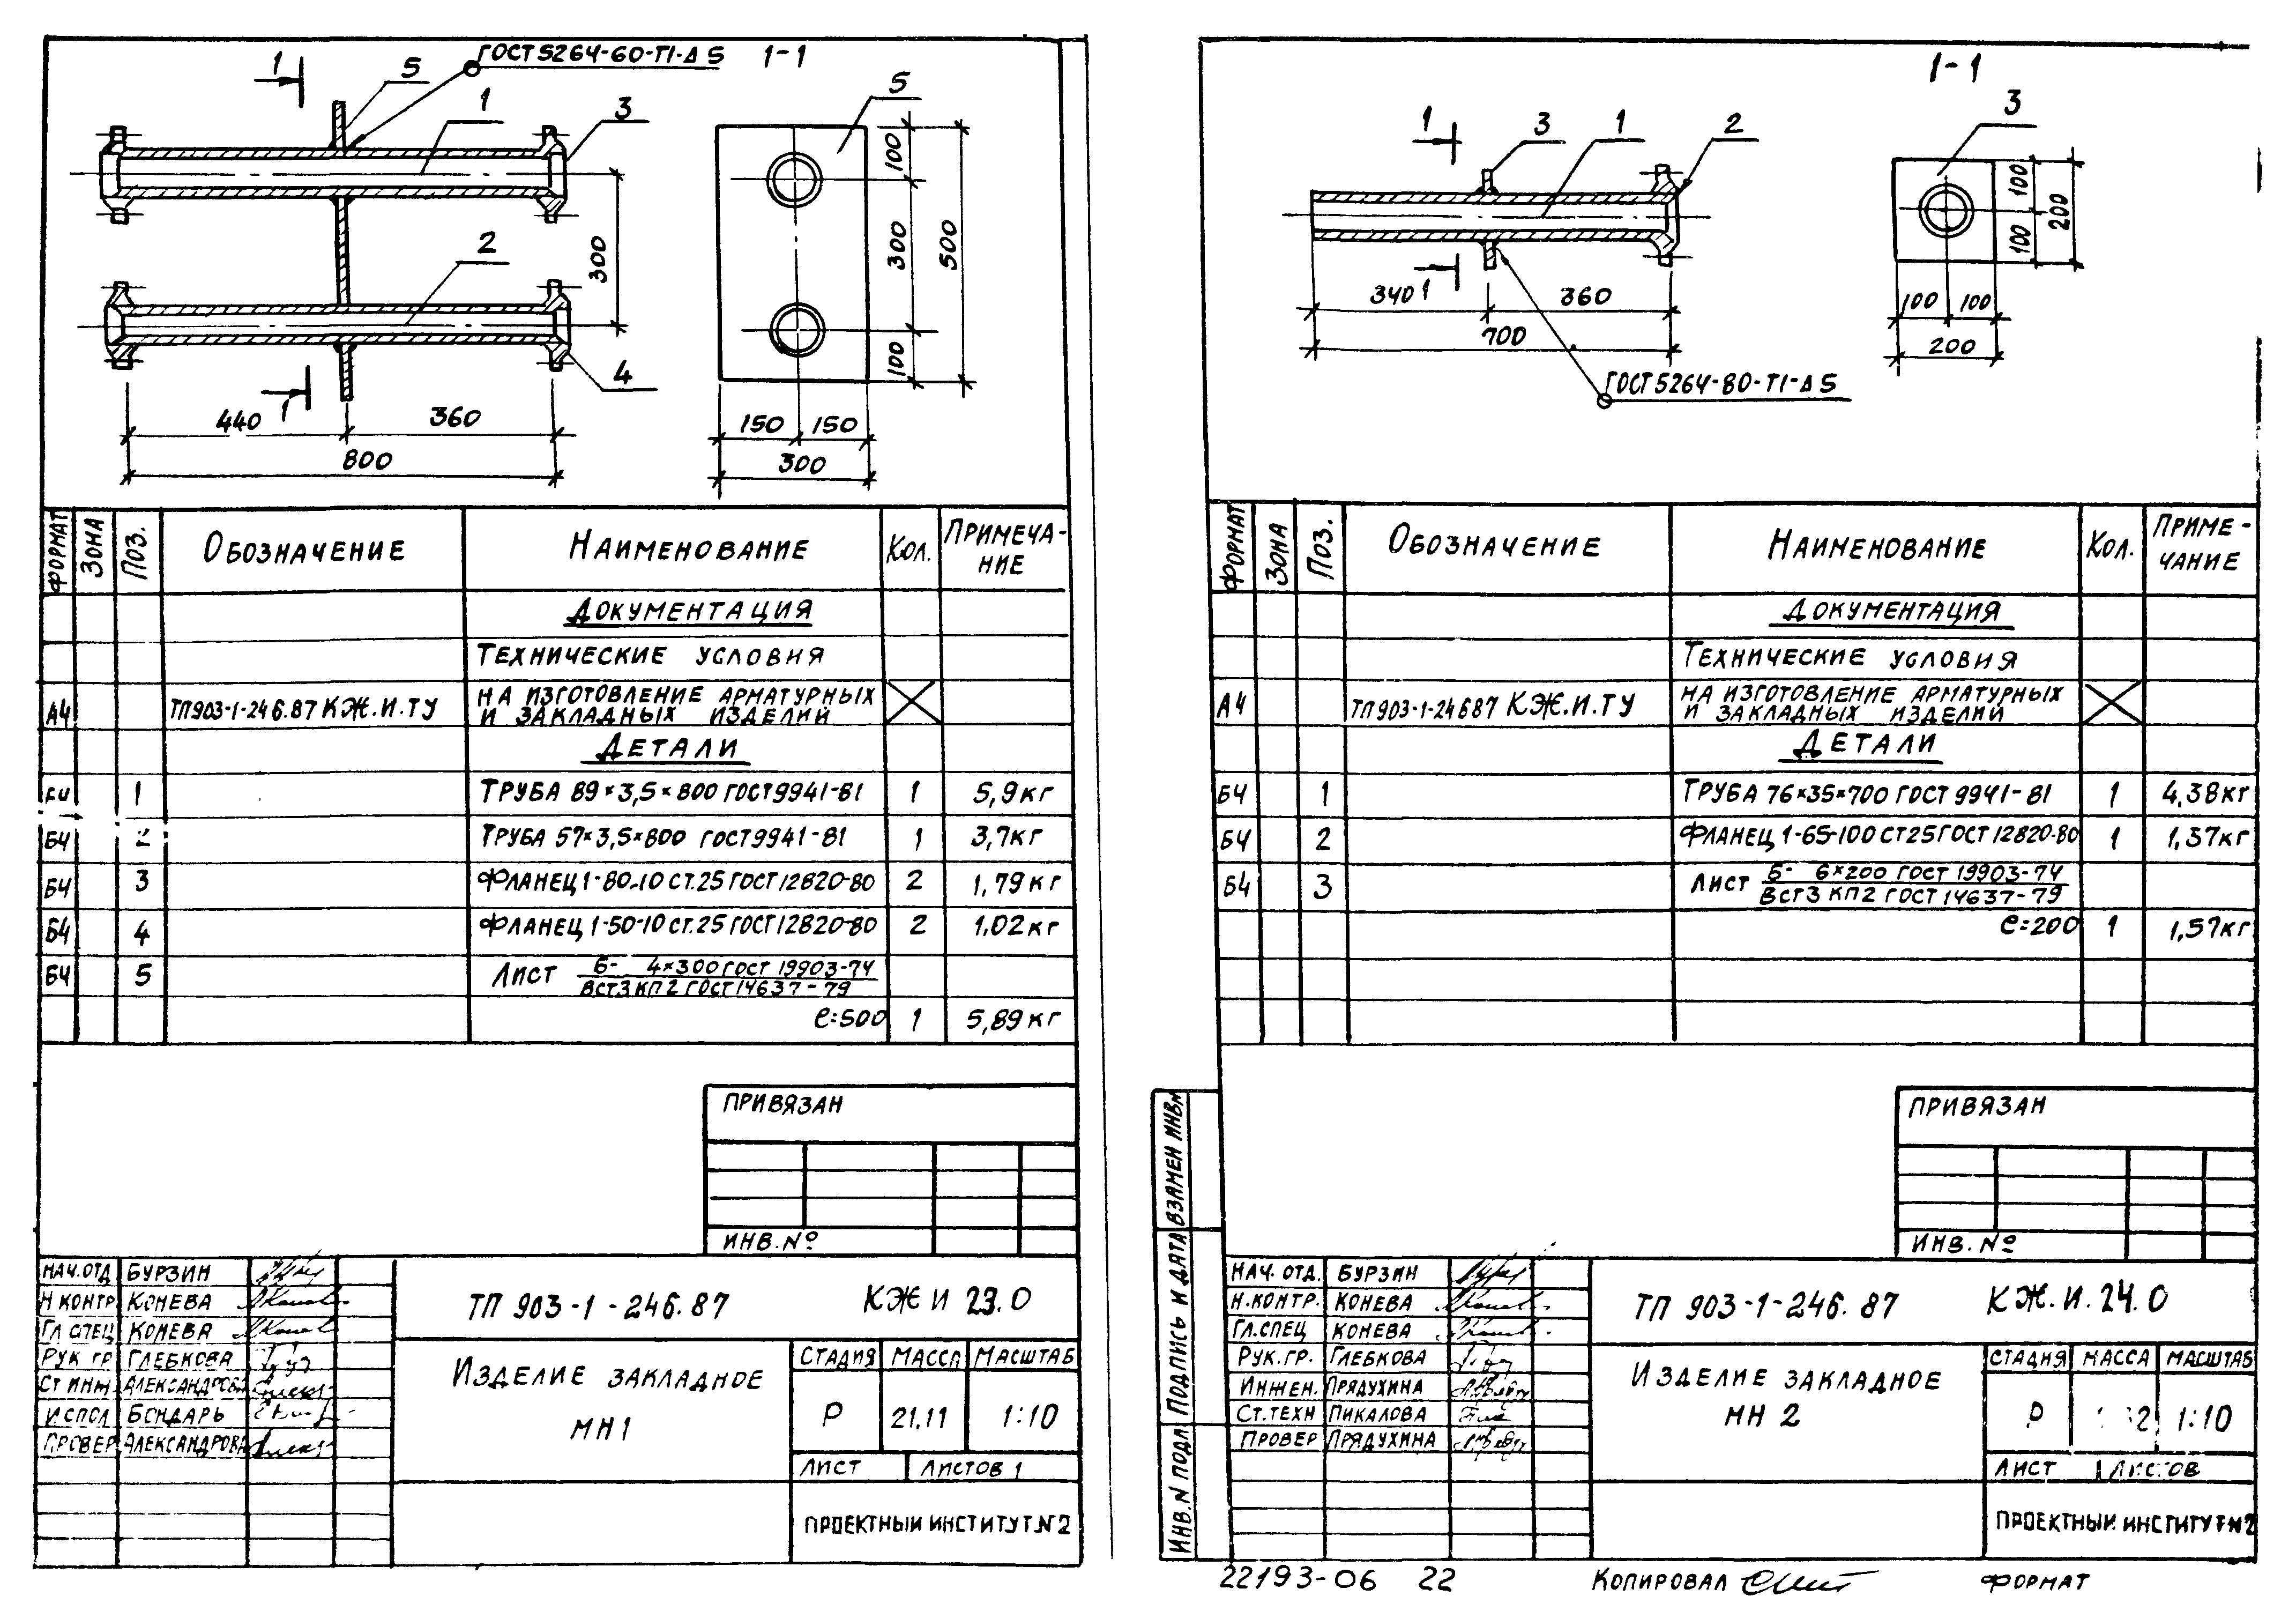 ГОСТ 5264-60-Т1-Δ 5
1-1
1
5
1
3
5
2
4
1
300
440
360
800
100
300
100
500
150
150
300
ФОРМАТ ЗОНА ПОЗ. ОБОЗНАЧЕНИЕ НАИМЕНОВАНИЕ КОЛ. ПРИМЕЧА-
НИЕ
ДОКУМЕНТАЦИЯ
ТЕХНИЧЕСКИЕ УСЛОВИЯ
А4 ТП903-1-246.87 КЖ.И.ТУ НА ИЗГОТОВЛЕНИЕ АРМАТУРНЫХ
И ЗАКЛАДНЫХ ИЗДЕЛИЙ
ДЕТАЛИ
Б4 1 ТРУБА 89×3,5×800 ГОСТ 9941-81 1 5,9кг
Б4 2 ТРУБА 57×3,5×800 ГОСТ 9941-81 1 3,7кг
Б4 3 ФЛАНЕЦ 1-80-10 СТ.25 ГОСТ 12820-80 2 1,79кг
Б4 4 ФЛАНЕЦ 1-50-10 СТ.25 ГОСТ 12820-80 2 1.02кг
Б4 5 ЛИСТ Б- 4×300 ГОСТ 19903-74
ВСТ3 КП 2 ГОСТ 14637-79
ℓ=500 1 5,89кг
ПРИВЯЗАН
ИНВ.№
НАЧ.ОТД БУРЗИН
Н КОНТР. КОНЕВА
ГЛ СПЕЦ КОНЕВА
РУК ГР ГЛЕБКОВА
СТ ИНЖ АЛЕКСАНДРОВА
ИСПОЛ БОНДАРЬ
ПРОВЕР АЛЕКСАНДРОВА
ТП 903-1-246.87 КЖ И 23.0
ИЗДЕЛИЕ ЗАКЛАДНОЕ
МН1
СТАДИЯ МАССА МАСШТАБ
Р 21,11 1:10
ЛИСТ ЛИСТОВ 1
ПРОЕКТНЫЙ ИНСТИТУТ №2
1-1
1
3
1
2
3
1
340
360
700
ГОСТ 5264-80-Т1-Δ 5
100
100
200
100
100
200
ФОРМАТ ЗОНА ПОЗ. ОБОЗНАЧЕНИЕ НАИМЕНОВАНИЕ КОЛ. ПРИМЕ-
ЧАНИЕ
ДОКУМЕНТАЦИЯ
ТЕХНИЧЕСКИЕ УСЛОВИЯ
А4 ТП903-1-24687 КЖ.И.ТУ НА ИЗГОТОВЛЕНИЕ АРМАТУРНЫХ
И ЗАКЛАДНЫХ ИЗДЕЛИЙ
ДЕТАЛИ
Б4 1 ТРУБА 76×35×700 ГОСТ 9941-81 1 4,38кг
Б4 2 ФЛАНЕЦ 1-65-100 СТ25 ГОСТ 12820-80 1 1,37кг
Б4 3 ЛИСТ Б- 6×200 ГОСТ 19903-74
ВСТ3 КП2 ГОСТ 14637-79
ℓ=200 1 1,57кг
ПРИВЯЗАН
ИНВ.№
ИНВ.N ПОДЛ ПОДПИСЬ И ДАТА ВЗАМЕН ИНВ№
НАЧ. ОТД. БУРЗИН
Н.КОНТР. КОНЕВА
ГЛ.СПЕЦ КОНЕВА
РУК.ГР. ГЛЕБКОВА
ИНЖЕН. ПРЯДУХИНА
СТ.ТЕХН ПИКАЛОВА
ПРОВЕР ПРЯДУХИНА
ТП 903-1-246.87 КЖ.И.24.0
ИЗДЕЛИЕ ЗАКЛАДНОЕ
МН 2
СТАДИЯ МАССА МАСШТАБ
Р 1:10
ЛИСТ 1 ЛИСТОВ
ПРОЕКТНЫЙ ИНСТИТУТ №2
22193-06 22 КОПИРОВАЛ ФОРМАТ